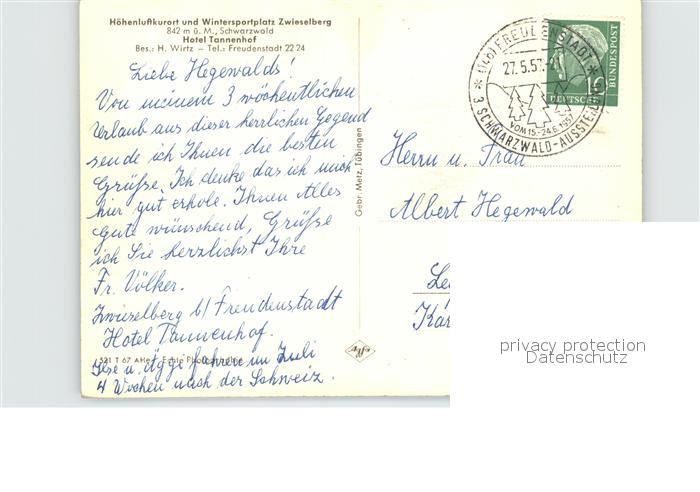 Höhenluftkurort und Wintersportplatz Zwieselberg
842 m ü. M., Schwarzwald
Hotel Tannenhof
Bes.: H. Wirtz – Tel.: Freudenstadt 22 24
Liebe Hegewalds!
Von meinem 3 wöchentlichen
Urlaub aus dieser herrlichen Gegend
sende ich Ihnen die besten
Grüße. Ich denke das ich mich
hier gut erhole. Ihnen Alles
Gute wünschend, Grüße
ich Sie herzlichst Ihre
Fr. Völker.
Zwieselberg b/ Freudenstadt
Hotel Tannenhof.
521 T 67 Echte Photographie
Ilse u. Ägge fahren im Juli
4 Wochen nach der Schweiz.
Gebr. Metz, Tübingen
(14b) FREUDENSTADT
27.5.57
VOM 15.-24.6.1957
3. SCHWARZWALD-AUSSTELLUNG
10
DEUTSCHE
BUNDESPOST
Herrn u. Frau
Albert Hegewald
privacy protection
Datenschutz